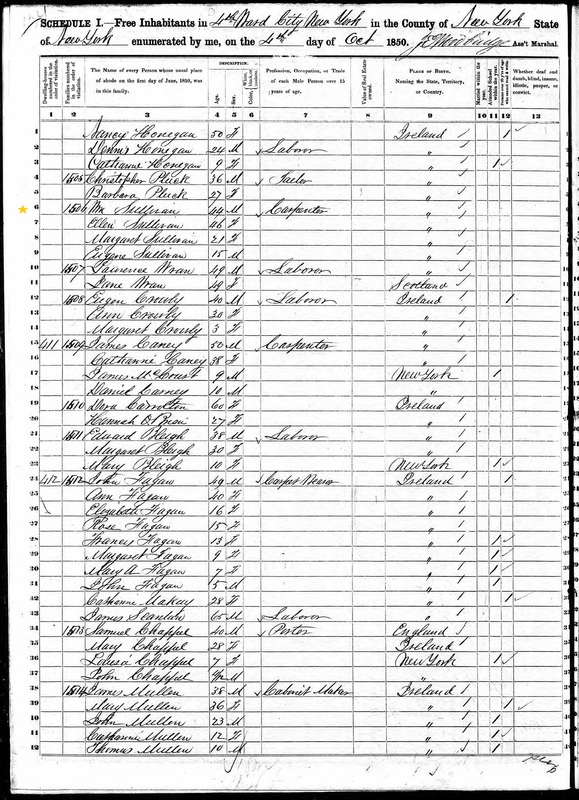 SCHEDULE I.—Free Inhabitants in 4th Ward City New York in the County of New York State
of New York enumerated by me, on the 4th day of Oct 1850. Ass't Marshal.
Dwelling-houses numbered in the order of visitation.
Families numbered in the order of visitation.
The Name of every Person whose usual place of abode on the first day of June, 1850, was in this family.
Age.
Sex.
Profession, Occupation, or Trade of each Male Person over 15 years of age.
Value of Real Estate owned.
Place of Birth. Naming the State, Territory, or Country.
Married within the year.
Attended School within the year.
Whether deaf and dumb, blind, insane, idiotic, pauper, or convict.
1 2 3 4 5 6 7 8 9 10 11 12 13
1 Nancy Honegan 50 F Ireland 1
2 Dennis Honegan 24 M Laborer "
3 Catharine Honegan 9 F " 1
4 1505 Christopher Pluck 36 M Tailor "
5 Barbara Pluck 27 F "
6 1506 Wm Sullivan 44 M Carpenter "
7 Ellen Sullivan 46 F "
8 Margaret Sullivan 21 F "
9 Eugene Sullivan 15 M "
10 1507 Laurence Wran 49 M Laborer "
11 Jane Wran 49 F Scotland
12 1508 Eugen Crowly 40 M Laborer Ireland 1
13 Ann Crowly 30 F "
14 Margaret Crowly 3 F "
15 411 1509 James Caney 50 M Carpenter "
16 Catharine Caney 38 F "
17 James McCourt 9 M New York 1
18 Daniel Carney 10 M "
19 1510 Dora Carrolton 60 F Ireland
20 Hannah O'Brien 27 F "
21 1511 Edward Bleigh 38 M Laborer "
22 Margaret Bleigh 30 F "
23 Mary Bleigh 10 F New York 1
24 412 1512 John Fagan 49 M Ireland 1
25 Ann Fagan 40 F "
26 Elizabeth Fagan 16 F "
27 Rose Fagan 15 F "
28 Frances Fagan 13 F " 1
29 Margaret Fagan 9 F " 1
30 Mary A Fagan 7 F " 1
31 John Fagan 5 M " 1
32 Catharine Makay 28 F " 1
33 James Scanlan 65 M Laborer "
34 1513 Samuel Chappel 40 M Porter England
35 Mary Chappel 28 F Ireland
36 Louisa Chappel 7 F New York 1
37 John Chappel M "
38 1514 James Mullen 38 M Cabinet Maker Ireland
39 Mary Mullen 36 F " 1
40 John Mullen 23 M " 1
41 Catharine Mullen 12 F " 1
42 Thomas Mullen 10 M " 1